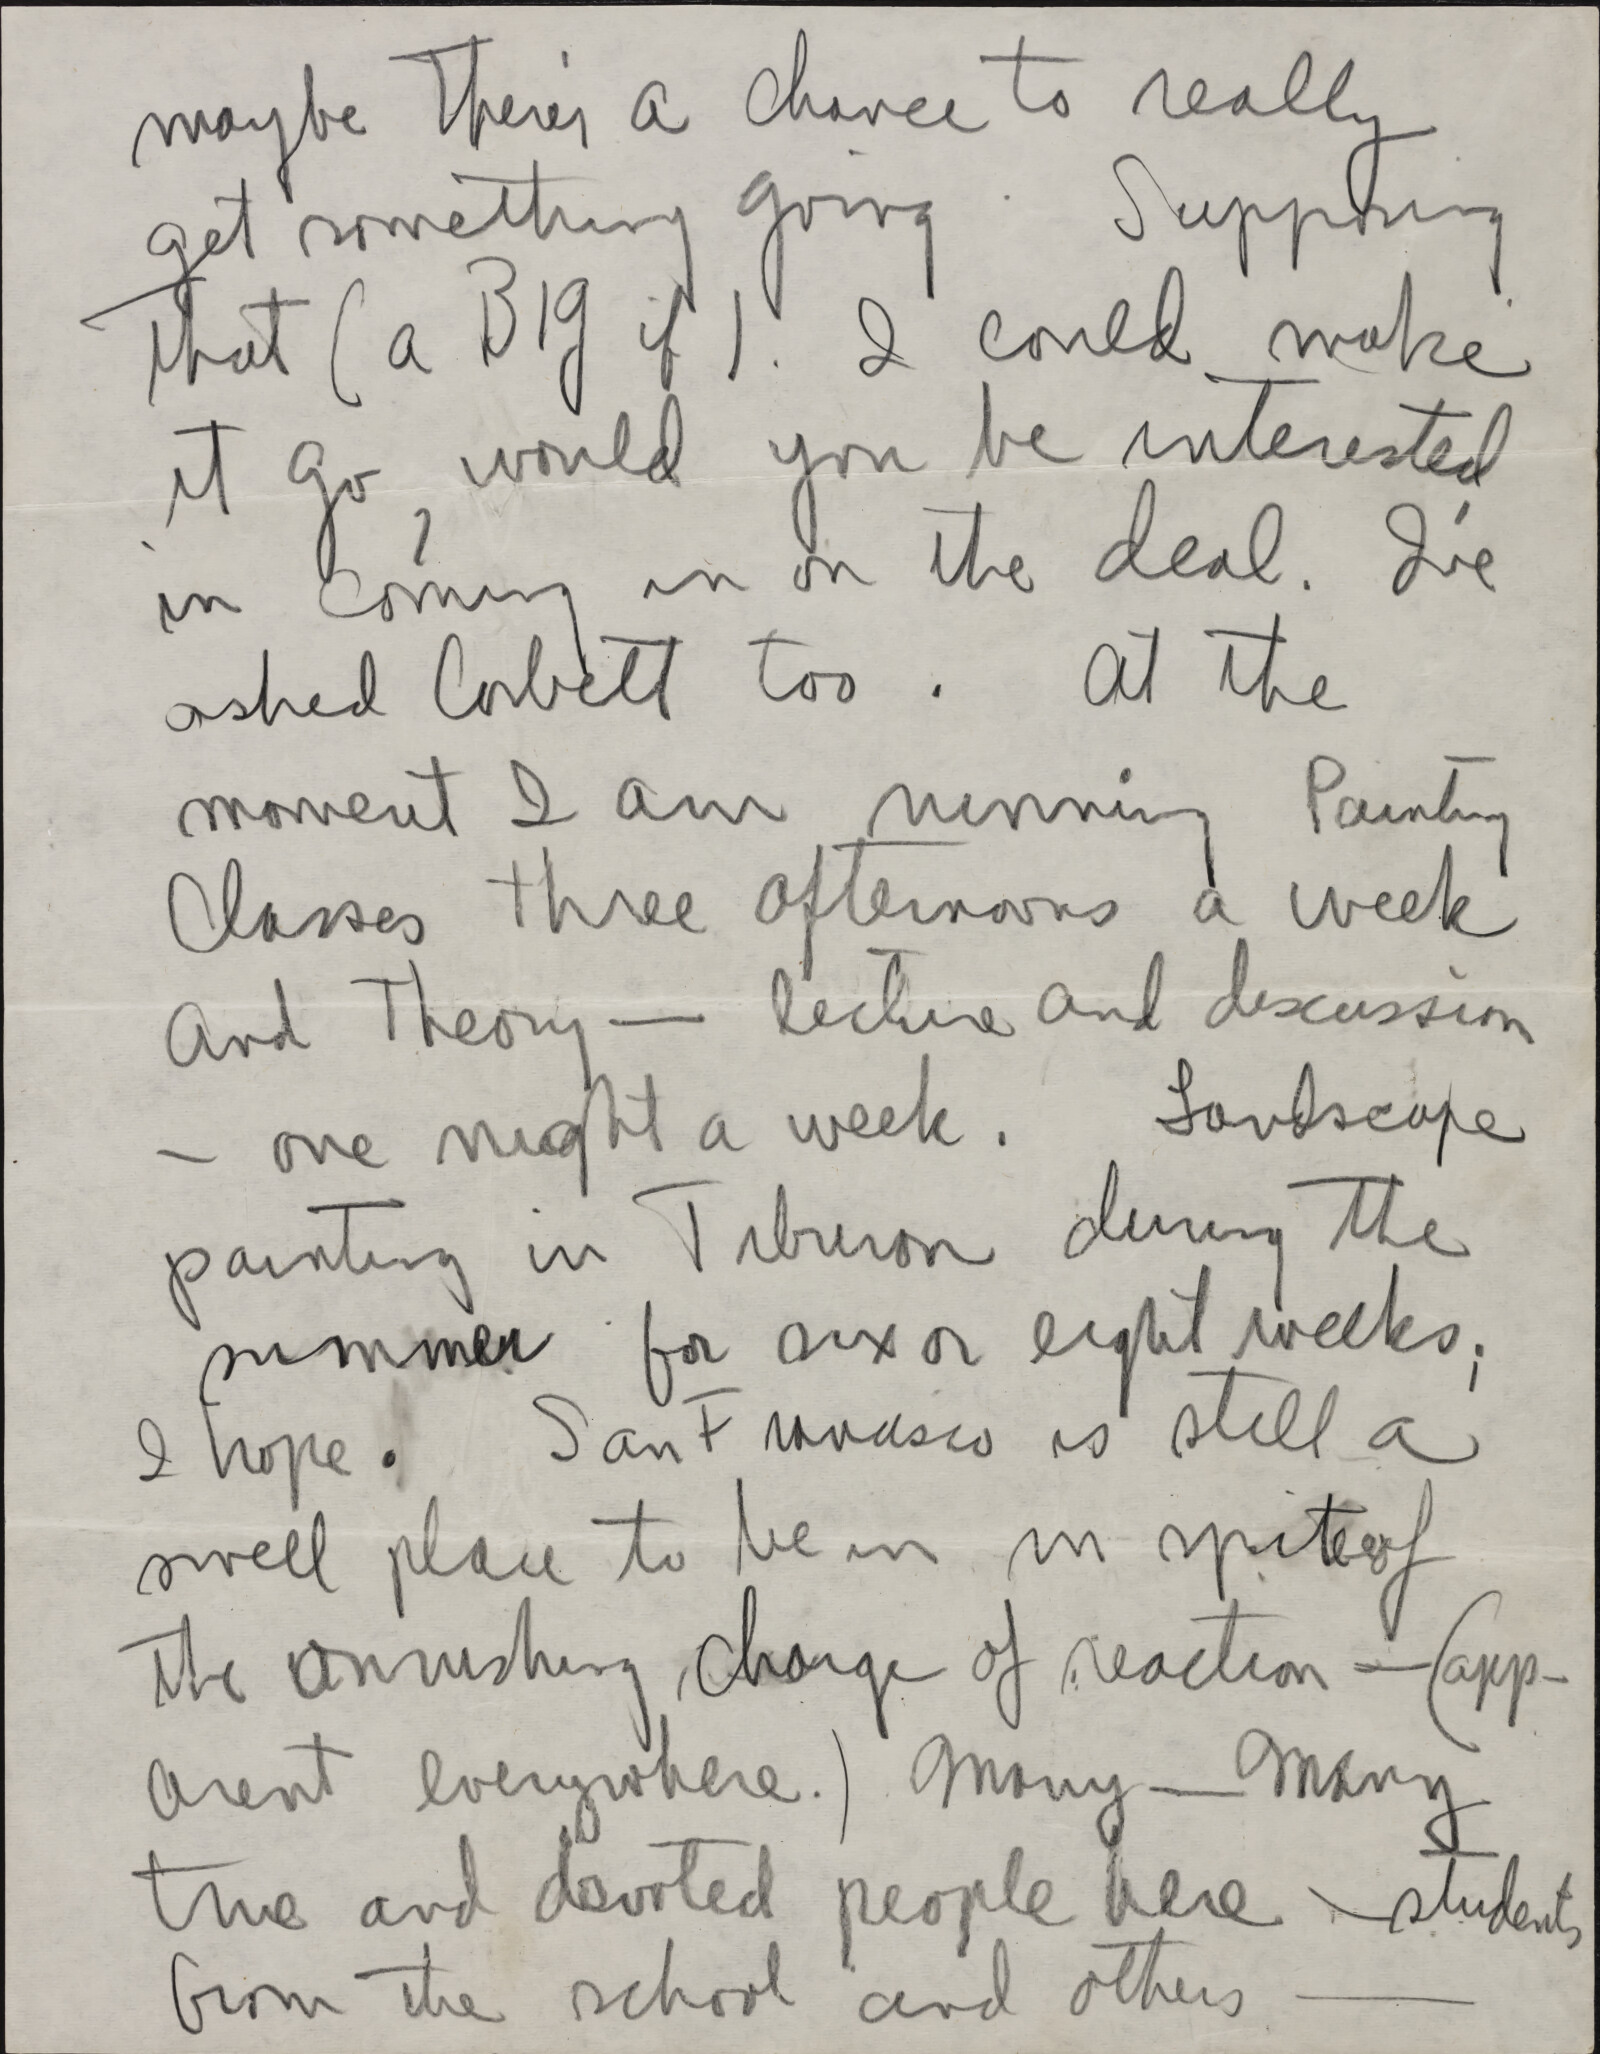 maybe there's a chance to really
get something going. Supposing
that (a BIG if). I could make
it go, would you be interested
in coming in on the deal. I've
asked Corbett too. At the
moment I am running Painting
Classes three afternoons a week
And Theory — lecture and discussion
— one night a week. Landscape
painting in Tiburon during the
summer for six or eight weeks,
I hope. San Francisco is still a
swell place to be in in spite of
the onrushing charge of reaction — (app-
arent everywhere.) Many — Many
true and devoted people here — students
from the school and others —